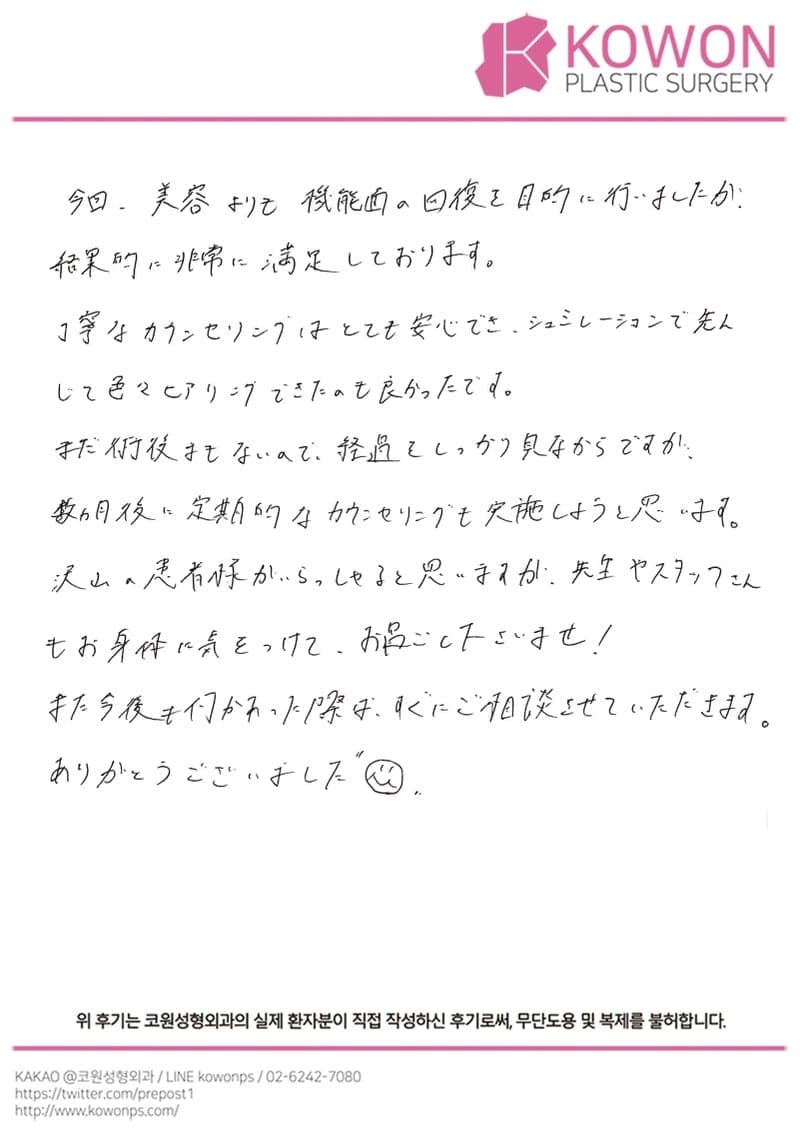 KOWON
PLASTIC SURGERY
今回、美容よりも機能面の回復を目的に行いましたが、
結果的に非常に満足しております。
丁寧なカウンセリングはとても安心でき、シュミレーションで先ん
じて色々ヒアリングできたのも良かったです。
まだ術後まもないので、経過をしっかり見ながらですが、
数ヵ月後に定期的なカウンセリングも実施しようと思います。
沢山の患者様がいらっしゃると思いますが、先生やスタッフさん
もお身体に気をつけて、お過ごし下さいませ！
また今後も何かあった際は、すぐにご相談させていただきます。
ありがとうございました"
위 후기는 코원성형외과의 실제 환자분이 직접 작성하신 후기로써, 무단도용 및 복제를 불허합니다.
KAKAO @코원성형외과 / LINE kowonps / 02-6242-7080
https://twitter.com/prepost1
http://www.kowonps.com/